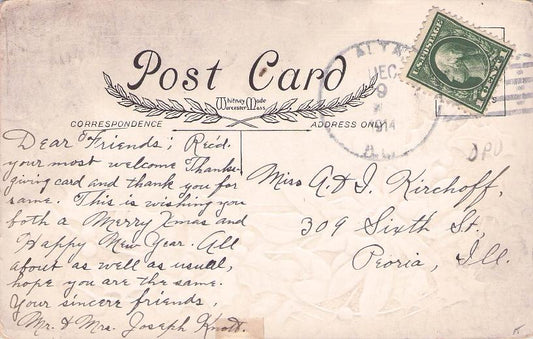 Post Card
Whitney Made
Worcester, Mass.
CORRESPONDENCE
ADDRESS ONLY
DEC
9
1914
U.S. POSTAGE
1 CENT 1
DPO
Dear Friends; Rec'd.
your most welcome Thanks-
giving card and thank you for
same. This is wishing you
both a Merry Xmas and
Happy New Year. All
about as well as usual,
hope you are the same.
Your sincere friends,
Mr. & Mrs. Joseph Knott.
Miss A. & I. Kirchoff,
309 Sixth St.,
Peoria, Ill.